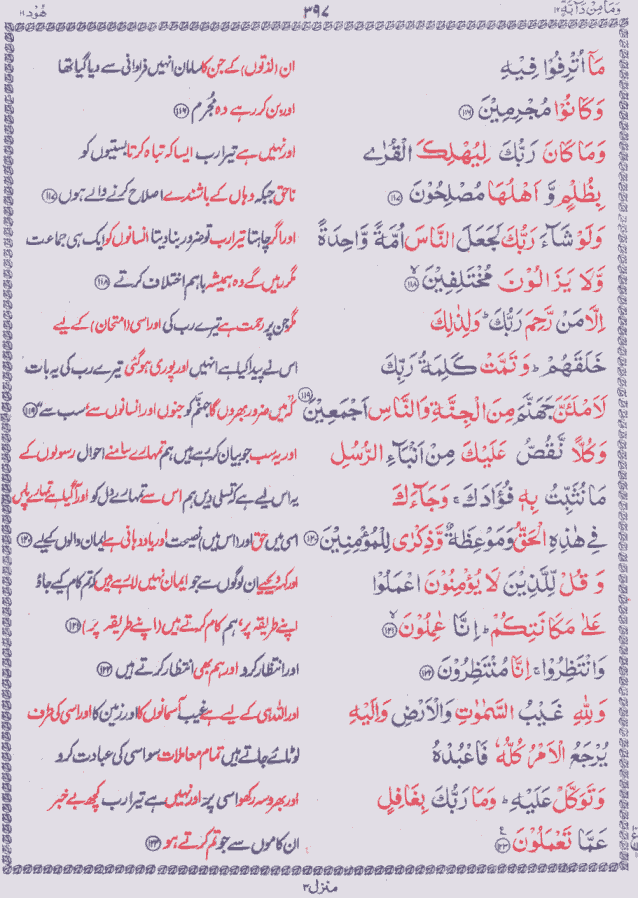 وَمَا مِنْ دَآبَّةٍ ۱۲ ۳۹۷ هُوْد ۱۱
مَآ اُتْرِفُوْا فِيْهِ ان (لذتوں) کے جن کا سامان انہیں فراوانی سے دیا گیا تھا
وَكَانُوْا مُجْرِمِيْنَ ﴿۱۱۶﴾ اور بن کر رہے وہ مجرم ﴿۱۱۶﴾
وَمَا كَانَ رَبُّكَ لِيُهْلِكَ الْقُرٰى اور نہیں ہے تیرا رب ایسا کہ تباہ کرتا بستیوں کو
بِظُلْمٍ وَّ اَهْلُهَا مُصْلِحُوْنَ ﴿۱۱۷﴾ ناحق جبکہ وہاں کے باشندے اصلاح کرنے والے ہوں ﴿۱۱۷﴾
وَلَوْ شَآءَ رَبُّكَ لَجَعَلَ النَّاسَ اُمَّةً وَّاحِدَةً اور اگر چاہتا تیرا رب تو ضرور بنا دیتا انسانوں کو ایک ہی جماعت
وَّلَا يَزَالُوْنَ مُخْتَلِفِيْنَ ﴿۱۱۸﴾ مگر رہیں گے وہ ہمیشہ باہم اختلاف کرتے ﴿۱۱۸﴾
اِلَّا مَنْ رَّحِمَ رَبُّكَ ؕ وَلِذٰلِكَ مگر جن پر رحمت ہے تیرے رب کی اور اسی (امتحان) کے لیے
خَلَقَهُمْ ؕ وَتَمَّتْ كَلِمَةُ رَبِّكَ اس نے پیدا کیا ہے انہیں اور پوری ہو گئی تیرے رب کی یہ بات
لَاَمْلَـَٔنَّ جَهَنَّمَ مِنَ الْجِنَّةِ وَالنَّاسِ اَجْمَعِيْنَ ﴿۱۱۹﴾ کہ میں ضرور بھروں گا جہنم کو جنوں اور انسانوں سے سب سے ﴿۱۱۹﴾
وَكُلًّا نَّقُصُّ عَلَيْكَ مِنْ اَنْۢبَآءِ الرُّسُلِ اور یہ سب جو بیان کر رہے ہیں ہم تمہارے سامنے احوال رسولوں کے
مَا نُثَبِّتُ بِهٖ فُؤَادَكَ ۚ وَجَآءَكَ یہ اس لیے ہے کہ تسلی دیں ہم اس سے تمہارے دل کو اور آ گیا ہے تمہارے پاس
فِيْ هٰذِهِ الْحَقُّ وَمَوْعِظَةٌ وَّذِكْرٰى لِلْمُؤْمِنِيْنَ ﴿۱۲۰﴾ اسی میں حق اور (اس میں) نصیحت اور یاد دہانی ہے ایمان والوں کیلیے ﴿۱۲۰﴾
وَ قُلْ لِّلَّذِيْنَ لَا يُؤْمِنُوْنَ اعْمَلُوْا اور کہہ دیجیے ان لوگوں سے جو ایمان نہیں لا رہے ہیں کہ تم کام کیے جاؤ
عَلٰى مَكَانَتِكُمْ ؕ اِنَّا عٰمِلُوْنَ ﴿۱۲۱﴾ اپنے طریقہ پر، ہم کام کرتے ہیں (اپنے طریقہ پر) ﴿۱۲۱﴾
وَانْتَظِرُوْا ۚ اِنَّا مُنْتَظِرُوْنَ ﴿۱۲۲﴾ اور انتظار کرو اور ہم بھی انتظار کرتے ہیں ﴿۱۲۲﴾
وَلِلّٰهِ غَيْبُ السَّمٰوٰتِ وَالْاَرْضِ وَاِلَيْهِ اور اللہ ہی کے لیے ہے غیب آسمانوں کا اور زمین کا اور اسی کی طرف
يُرْجَعُ الْاَمْرُ كُلُّهٗ فَاعْبُدْهُ لوٹائے جاتے ہیں تمام معاملات سو اسی کی عبادت کرو
وَتَوَكَّلْ عَلَيْهِ ؕ وَمَا رَبُّكَ بِغَافِلٍ اور بھروسہ رکھو اسی پر، اور نہیں ہے تیرا رب کچھ بے خبر
عَمَّا تَعْمَلُوْنَ ﴿۱۲۳﴾ ان کاموں سے جو تم کرتے ہو ﴿۱۲۳﴾
منزل ۳